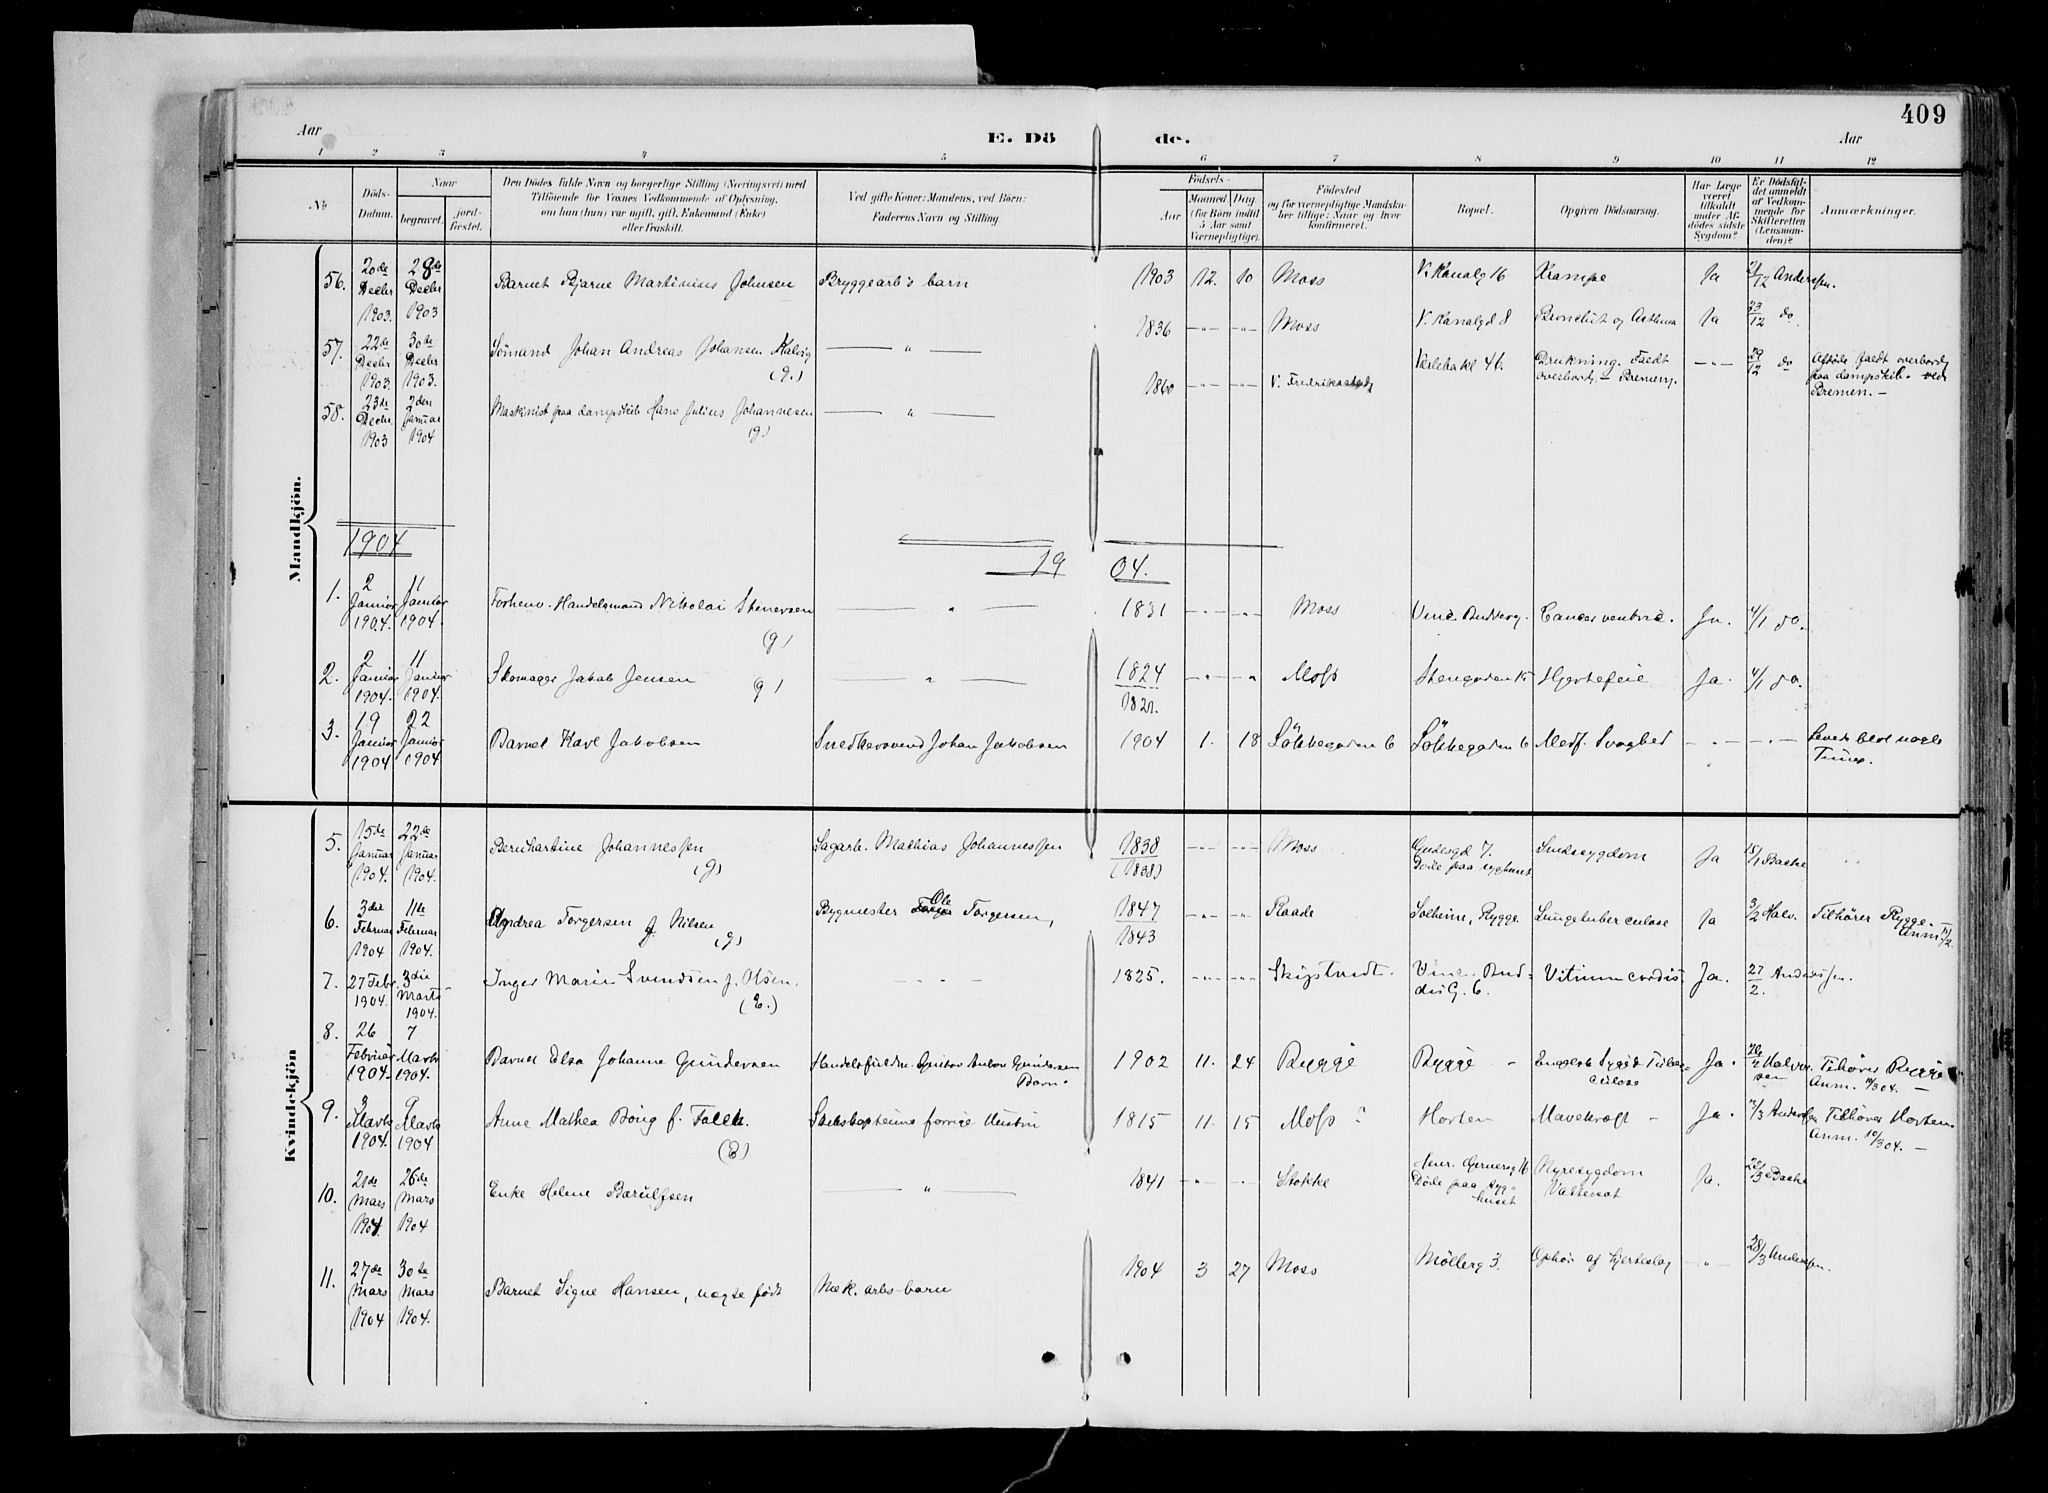 409
Aar
E. Dö de.
Aar
1 2 3 4 5 6 7 8 9 10 11 12
No.
Döds-Datum.
Naar
begravet.
jord-fæstet.
Den Dödes fulde Navn og borgerlige Stilling (Næringsvei) med
Tilföiende for Voxnes Vedkommende af Oplysning,
om han (hun) var ugift, gift, Enkemand (Enke)
eller fraskilt.
Ved gifte Koner: Mandens, ved Börn:
Faderens Navn og Stilling.
Födsels-
Aar
Maaned. Dag.
(for Börn indtil
5 Aar samt
Værnepligtige).
Födested
og (for værnepligtige Mandska-
ber tillige: Naar og hvor
konfirmeret.
Bopæl.
Opgiven Dödsaarsag.
Har Læge
været
tilkaldt
under Af-
dödes sidste
Sygdom?
Er Dödsfal-
det anmeldt
af Vedkom-
mende for
Skifteretten
(Lensman-
den)?
Anmærkninger.
Mandkjön.
56. 20de Decbr 1903. 28de Decbr 1903 Barnet Bjarne Martinius Johnsen Bryggearb's barn 1903 12. 10 Moss V. Kanalg 16 Krampe Ja 21/12 Andersen.
57. 22de Decbr 1903. 30te Decbr 1903. Sömand Johan Andreas Johansen Kalvig (g.) — " — 1836 -"- -"- Moss V. Kanalgd 8 Bronchit og Asthma Ja 23/12 do.
58. 23de Decbr 1903 2den Januar 1904 Maskinist paa dampskib Hans Julius Johannesen (g) — " — 1860 -"- -"- V. Fredrikstad 4b. Drukning. Faldt overbord - Bremen. -"- 29/12 do Afdöde faldt overbord paa dampskib ved Bremen. -
1904
1904.
1. 2 Januar 1904. 11 Januar 1904. Forhenv. Handelsmand Nikolai Stenersen (g) — " — 1831 -"- -"- Moss Cancer ventric. Ja. 4/1 do.
2. 2 Januar 1904. 11 Januar 1904. Skomager Jakob Jensen (g) — " — 1824 1821. -"- " Moss Stengaden 15 Hjertefeil Ja. 4/1 do.
3. 19 Januar 1904 22 Januar 1904 Barnet Karl Jakobsen Snedkersvend Johan Jakobsen 1904 1. 18 Solbbegaden 6 Solbbegaden 6 Medf. Svaghed -"- -"- Levede blot nogle Timer.
Kvindekjön
5. 15de Januar 1904. 22de Januar 1904. Bernhartine Johannessen (g) Sagarb. Mathias Johannessen 1838 (1838) -"- -"- Moss Gudesgd 7. Döde paa syghuset Sindssygdom Ja 18/1 Bache
6. 3die Februar 1904 11te Februar 1904. Andrea Torgersen f. Nilsen (g) Bygmester Ole Torgersen, 1847 1843 -"- -"- Raade Solheim, Rygge Lungetuberculose Ja 3/2 Halv. Tilhörer Rygge. - Anm. 11/2.
7. 27 Febr. 1904. 3die Marts 1904. Inger Marie Svendsen f. Olsen. (E.) - " - 1825. -"- -"- Skiptvedt. Vitium cordis Ja. 27/2. Andersen.
8. 26 Februar 1904. 7 Marts 1904. Barnet Elsa Johanne Gundersen Handelsfuldm. Gustav Anton Gundersen Barn. 1902 11. 24 Rygge Rygge - Engelsk Syge Tuberculose Ja. Halvorsen Tilhörer Rygge Anm. 11/3 04. -
9. 3 Marts 1904. 9 Marts 1904 Anne Mathea Böng f. Falck. (E) Skibskapteins forrige Hustru 1815 11. 15 Moss ? Horten Mavekræft - Ja. 7/3 Andersen Tilhörer Horten. Anm. 10/3 04. -
10. 21de Mars 1904. 26de Mars 1904 Enke Helene Bærulfsen — " — 1841 -"- -"- Stokke Henr. Gernersg 16 Döde paa syghuset Nyresygdom Vattersot Ja. 22/3 Bache
11. 27de Mars 1904 30te Mars 1904. Barnet Signe Hansen, uægte födt Mek. arbs-barn 1904 3 27 Moss Möllerg 3. Ophör af hjerteslag -"- 28/3 Andersen.